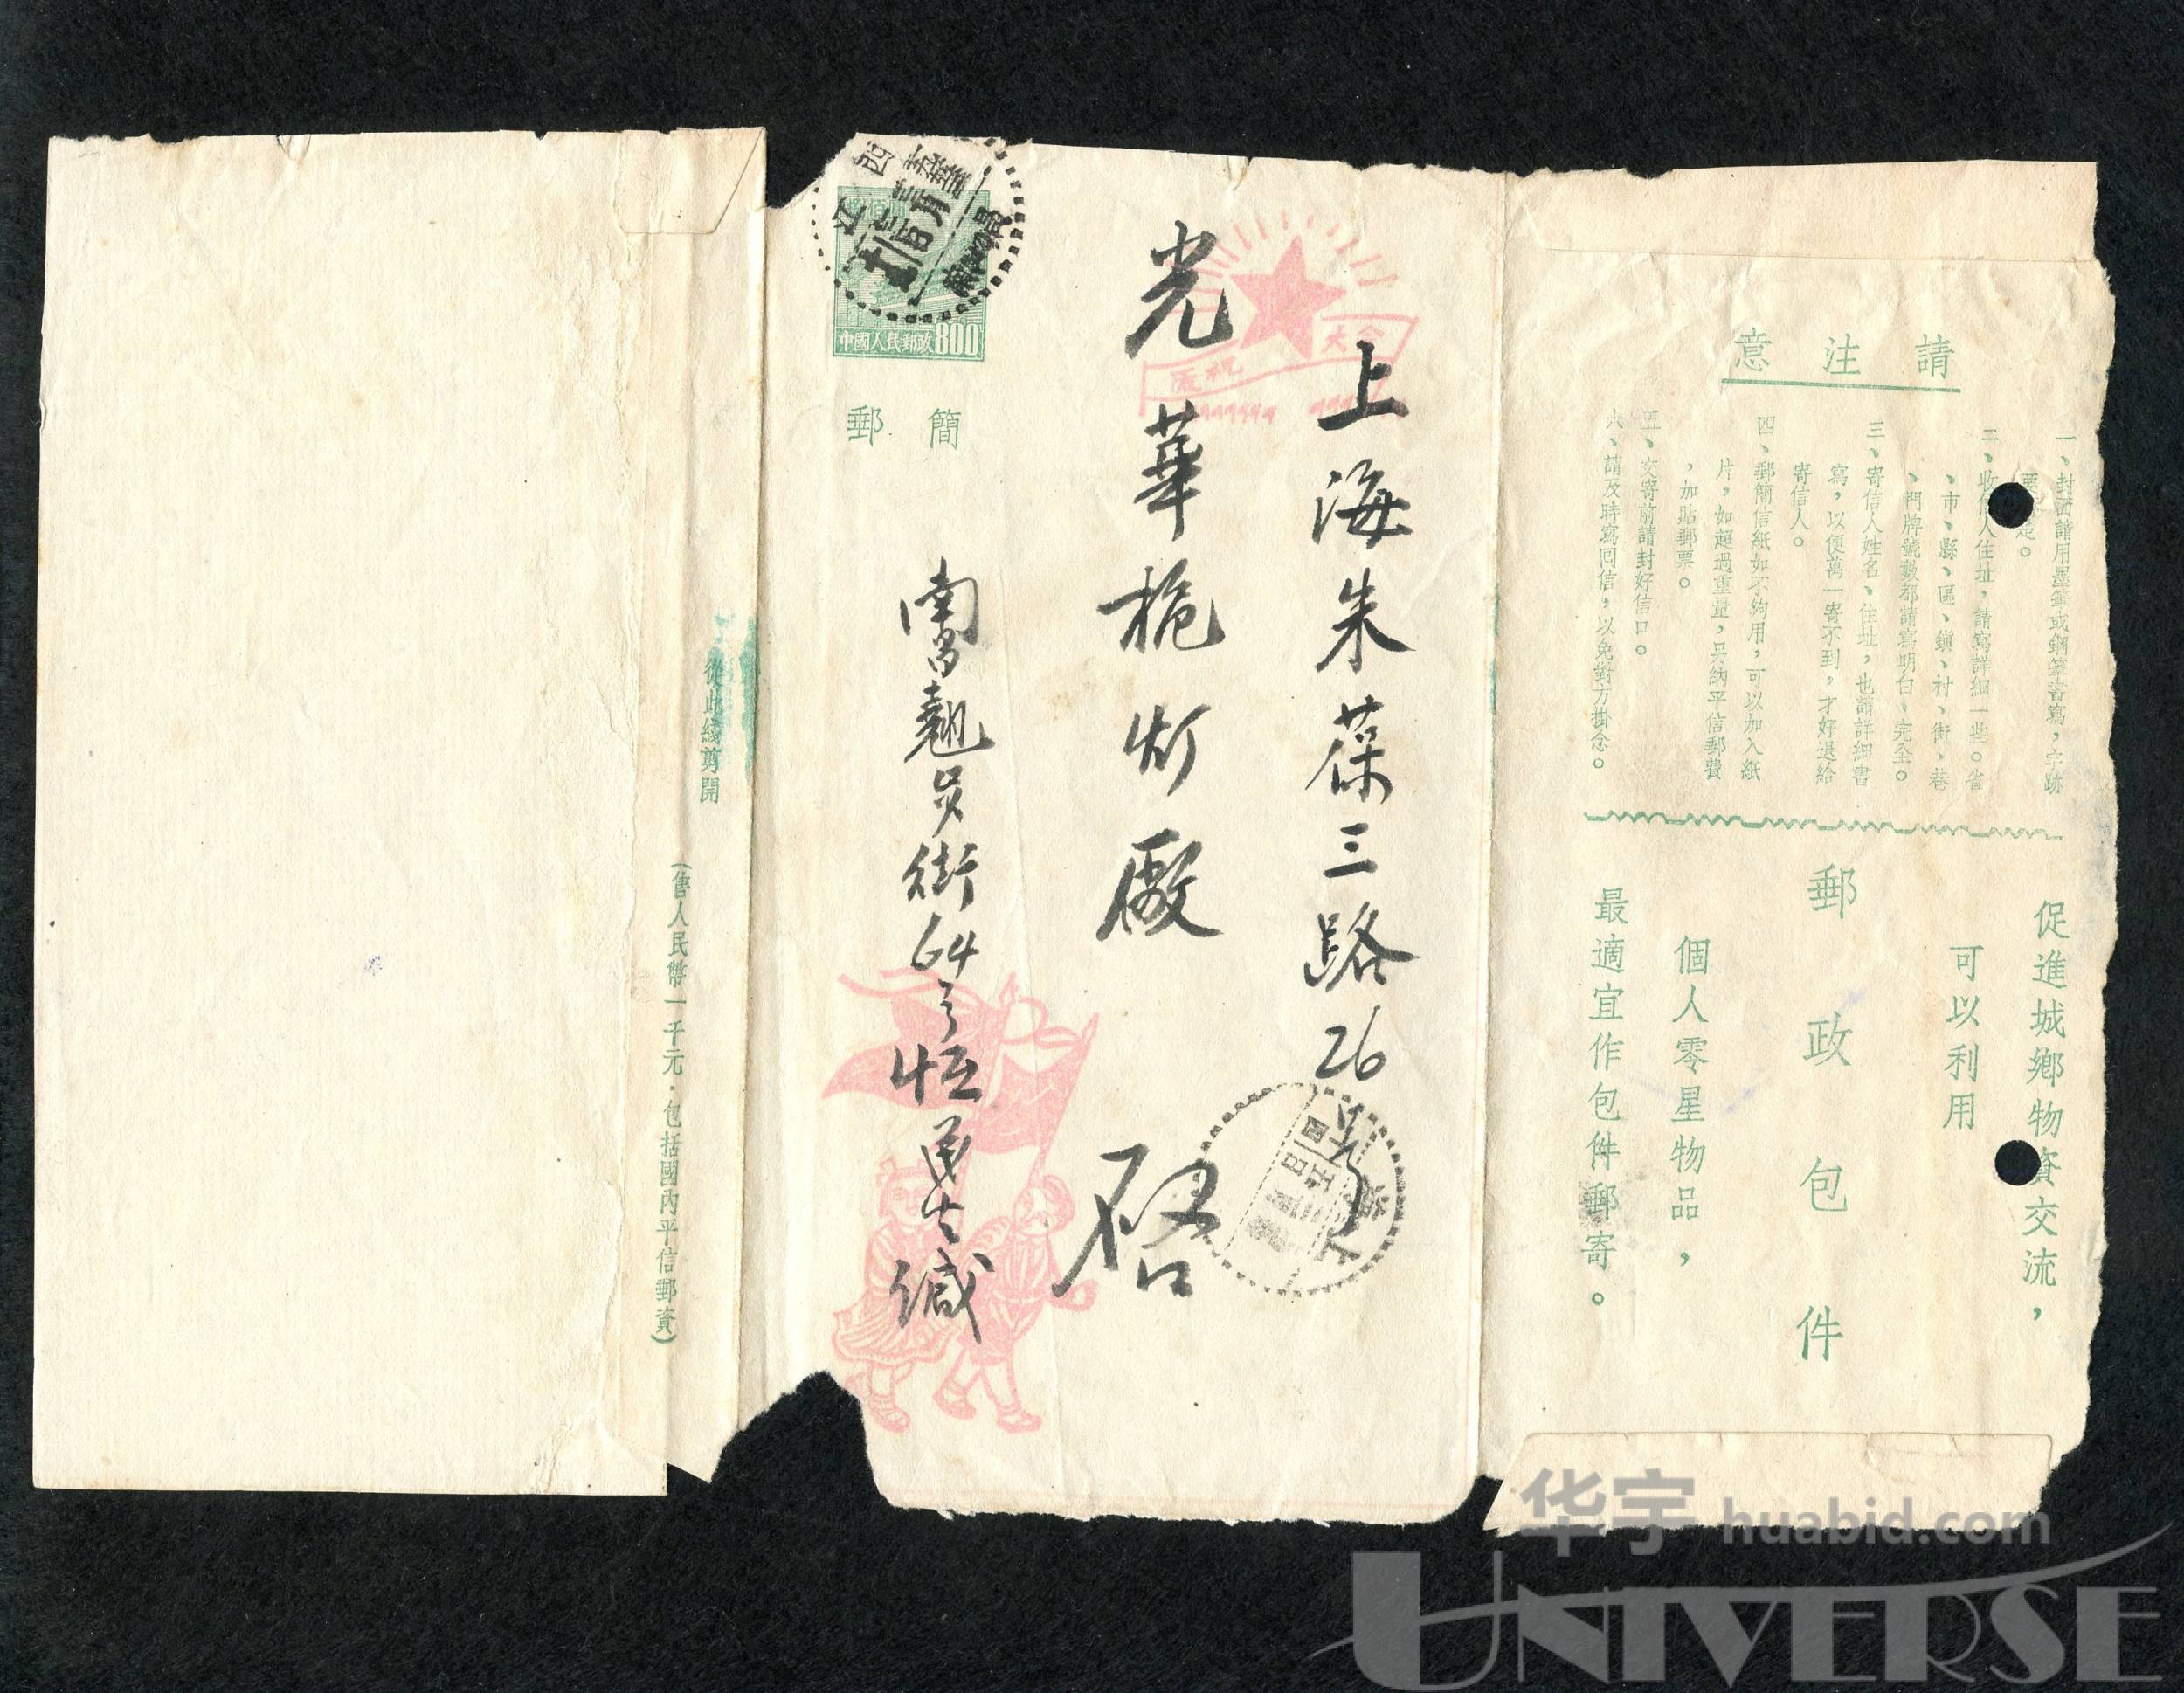 請注意
一、封面請用墨筆或鋼筆書寫，字跡
二、收信人住址，請寫詳細一些。省
、市、縣、區、鎮、村、街、巷
、門牌號數都請寫明白、完全。
三、寄信人姓名、住址，也請詳細書
寫，以便萬一寄不到，才好退給
寄信人。
四、郵簡信紙如不夠用，可以加入紙
片，如超過重量，另納平信郵費
，加貼郵票。
五、交寄前請封好信口。
六、請及時寫回信，以免對方掛念。
促進城鄉物資交流，
可以利用
郵政包件
個人零星物品，
最適宜作包件郵寄。
上海朱葆三路26号
光華桅灯廠 啓
南昌翹步街64号恒
緘
慶祝
大会
中國人民郵政800
郵簡
江西
南昌
從此綫剪開
(售人民幣一千元·包括國內平信郵資)
华宇 huabid.com
UNIVERSE